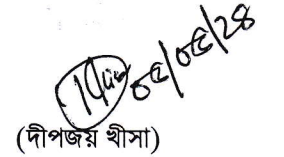 ০৫/০৫/২৪
(দীপজয় খীসা)